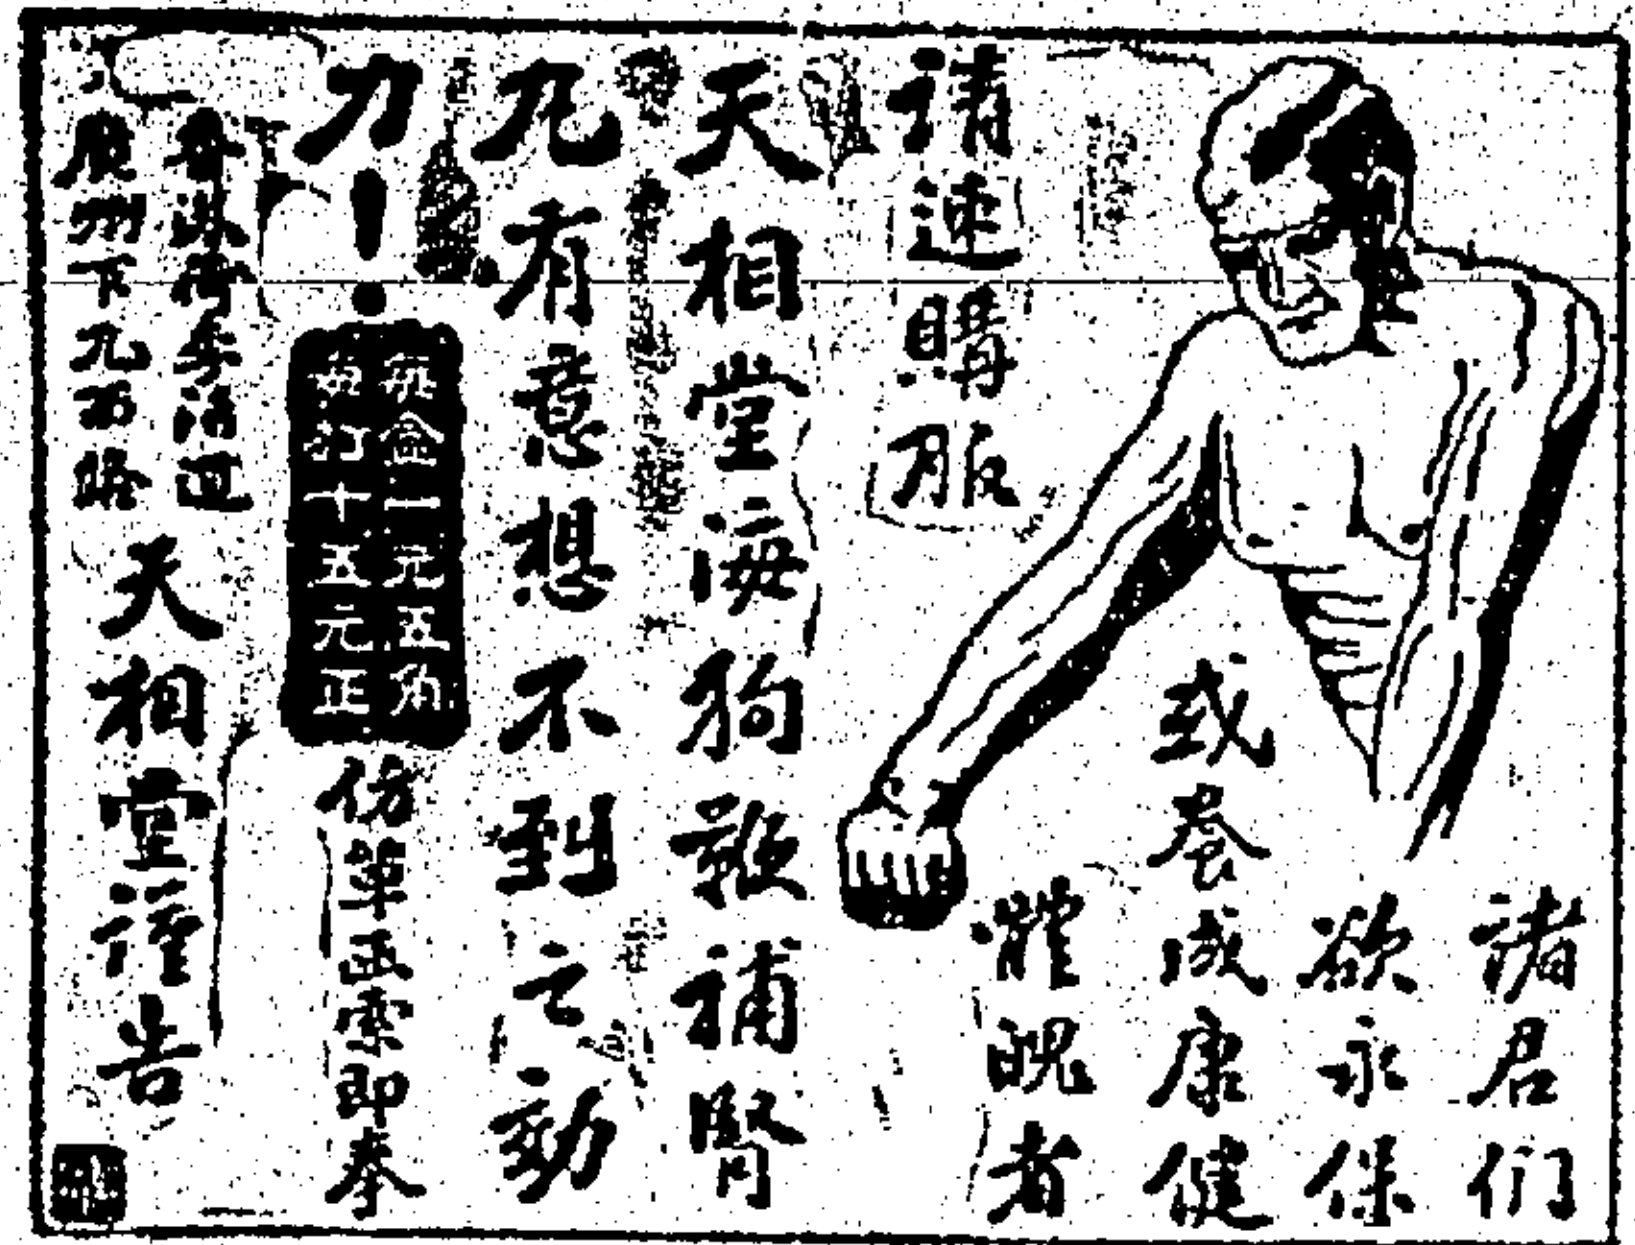 諸君们
欲永保
或養成康健
體魄者
請速購服
天相堂海狗鞭補腎
丸有意想不到之効
力！
每盒一元五角
每打十五元正
仿單函索即奉
香港荷李活道
廣州下九西路
天相堂謹告